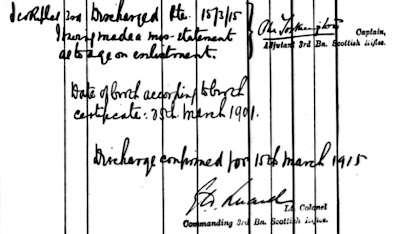 Sco Rifles 3rd Discharged Pte. 15/3/15
Having made a mis-statement
as to age on enlistment.
Captain,
Adjutant 3rd Bn. Scottish Rifles.
Date of birth according to birth
certificate: 25th March 1901.
Discharge confirmed for 15th March 1915
Lt. Colonel
Commanding 3rd Bn. Scottish Rifles.